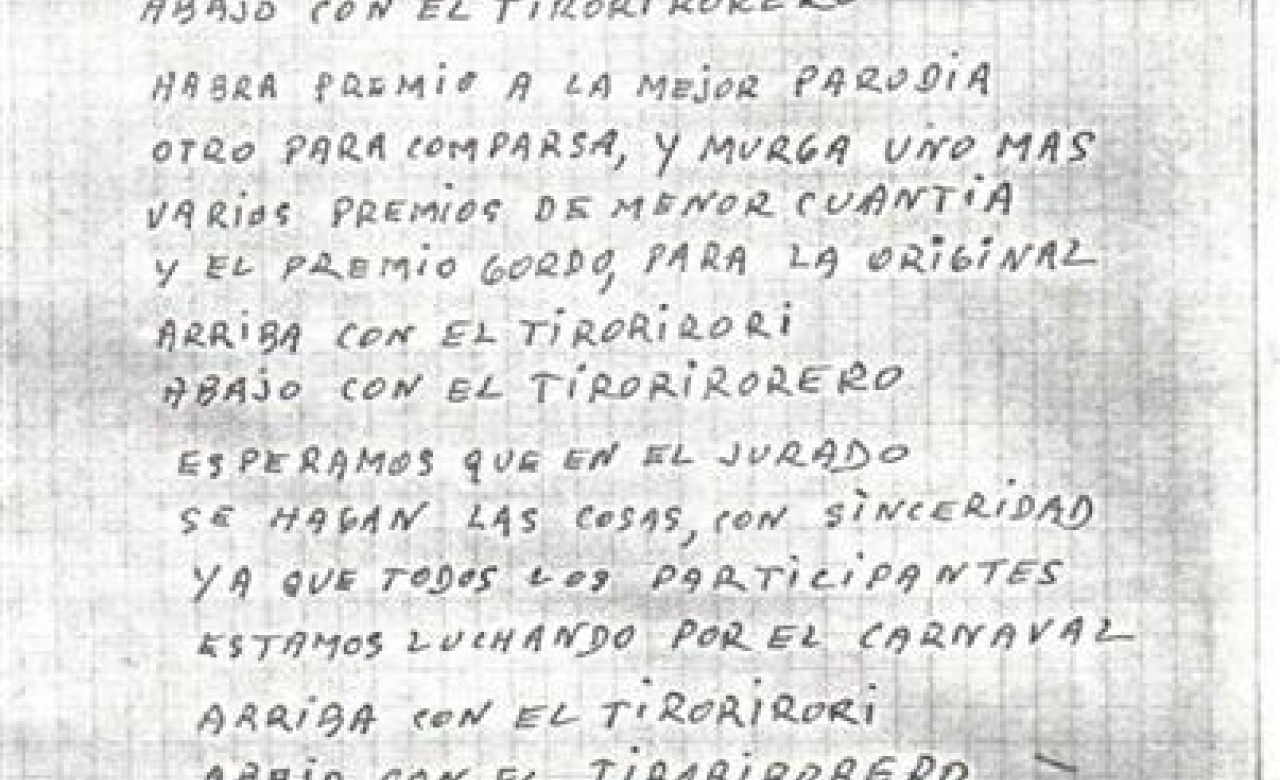 ABAJO CON EL TIRORIRORERO
HABRA PREMIO A LA MEJOR PARODIA
OTRO PARA COMPARSA, Y MURGA UNO MAS
VARIOS PREMIOS DE MENOR CUANTIA
Y EL PREMIO GORDO, PARA LA ORIGINAL
ARRIBA CON EL TIRORIRORI
ABAJO CON EL TIRORIRORERO
ESPERAMOS QUE EN EL JURADO
SE HAGAN LAS COSAS, CON SINCERIDAD
YA QUE TODOS LOS PARTICIPANTES
ESTAMOS LUCHANDO POR EL CARNAVAL
ARRIBA CON EL TIRORIRORI
ABAJO CON EL TIRORIRORERO